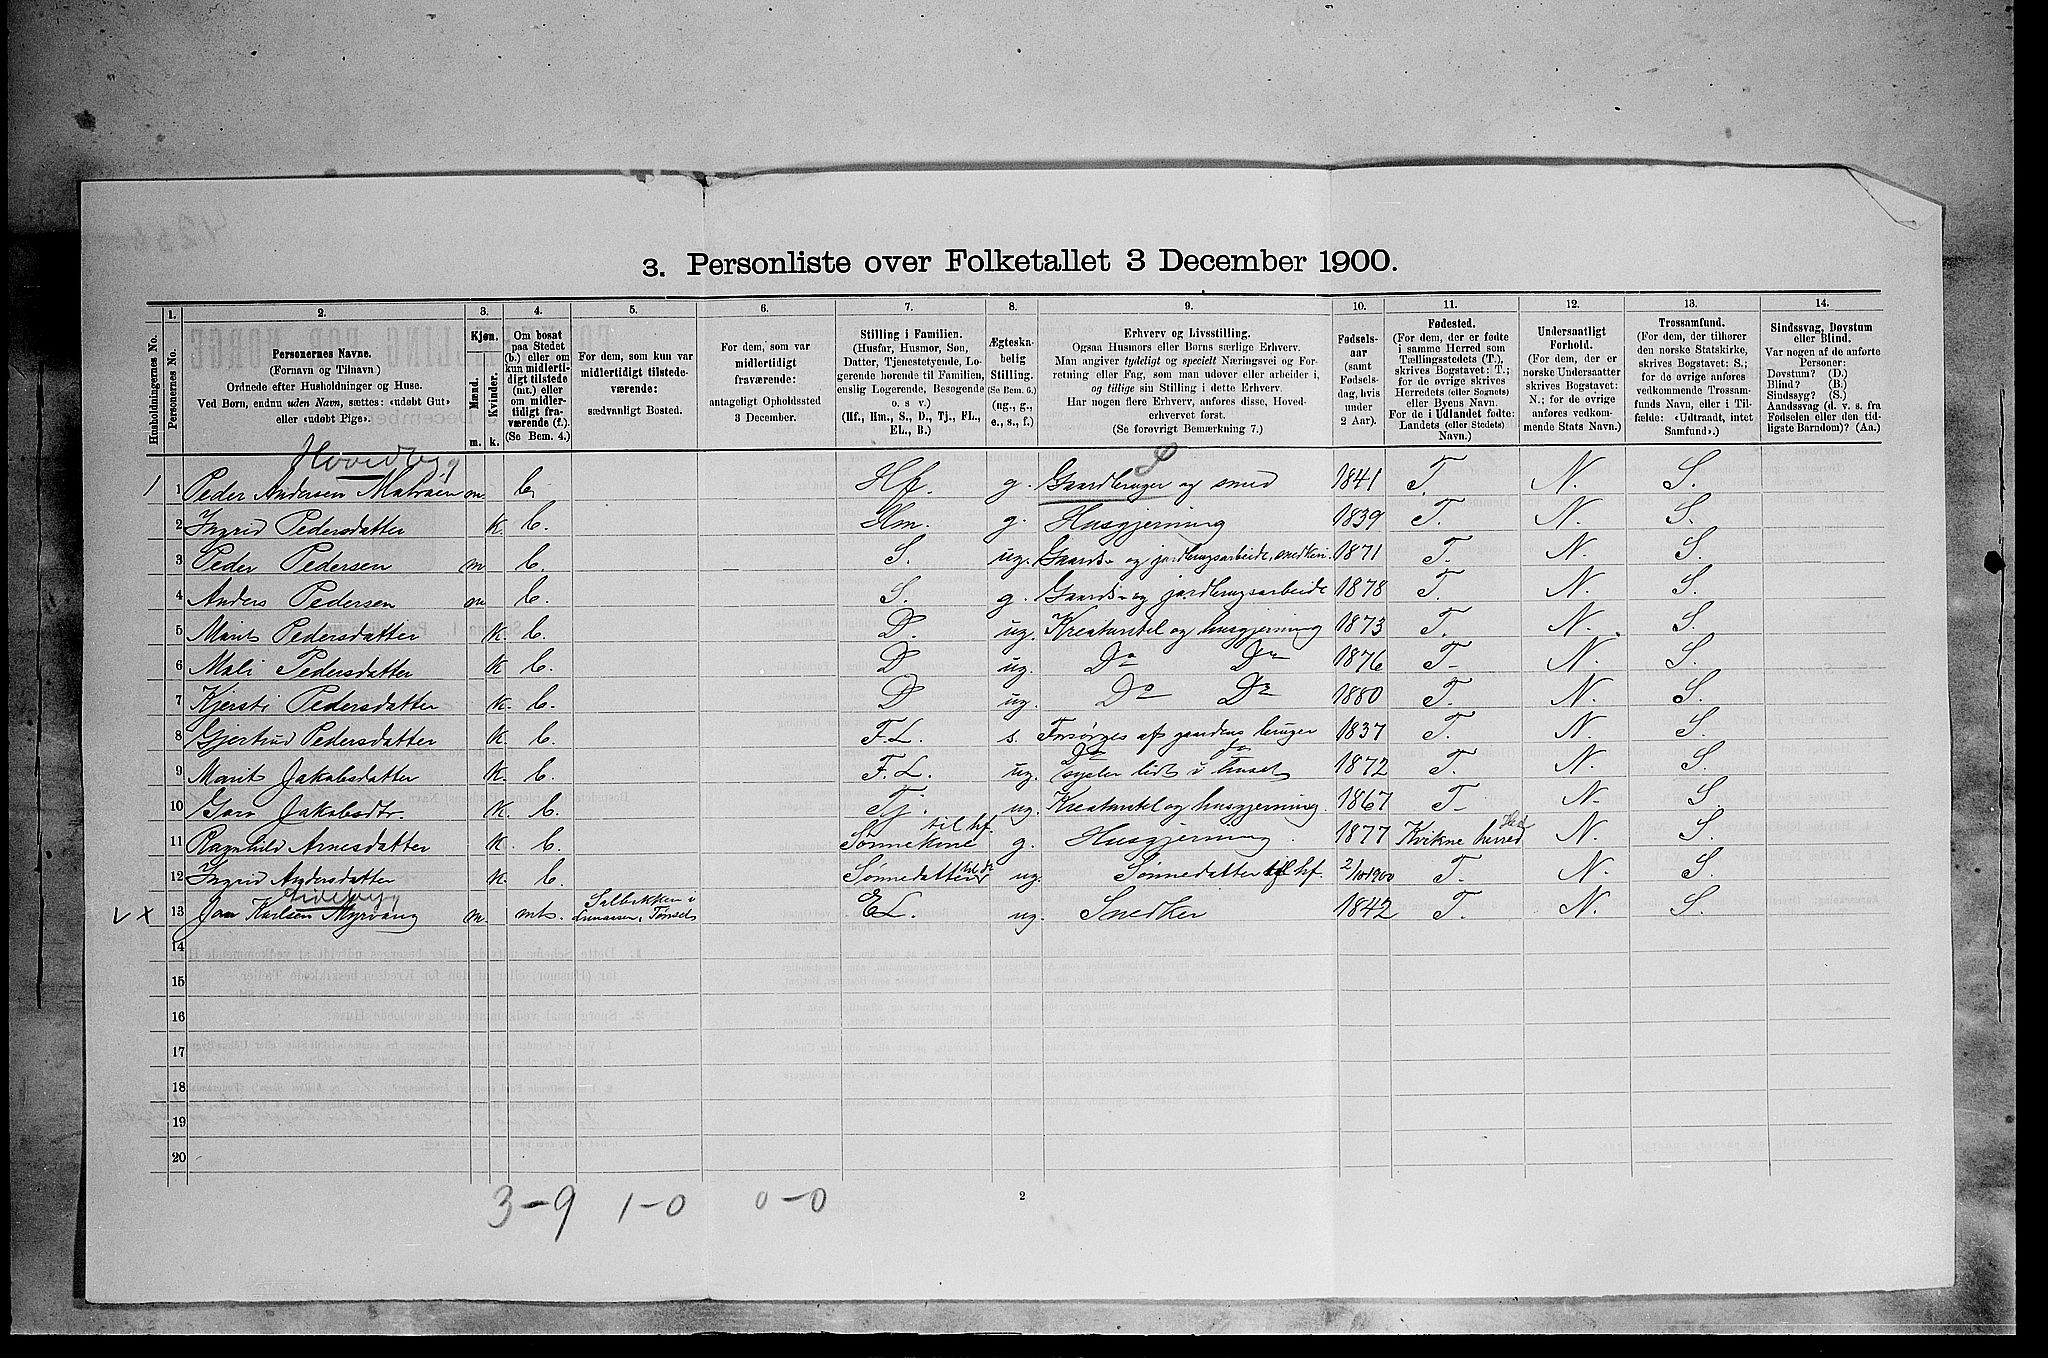 3. Personliste over Folketallet 3 December 1900.
1. 2. 3. 4. 5. 6. 7. 8. 9. 10. 11. 12. 13. 14.
Husholdningernes No.
Personernes No.
Personernes Navne.
(Fornavn og Tilnavn)
Ordnede efter Husholdninger og Huse.
Ved Børn, endnu uden Navn, sættes: «udøbt Gut»
eller «udøbt Pige».
Kjøn.
Mænd.
Kvinder.
m. k.
Om bosat
paa Stedet
(b.) eller om
kun midlerti-
digt tilstede
(mt.) eller
om midler-
tidigt fra-
værende (f.).
(Se Bem. 4.)
For dem, som kun var
midlertidigt tilstede-
værende:
sædvanligt Bosted.
For dem, som var
midlertidigt
fraværende:
antageligt Opholdssted
3 December.
Stilling i Familien.
(Husfar, Husmor, Søn,
Datter, Tjenestetyende, Lo-
gerende hørende til Familien,
enslig Logerende, Besøgende
o. s. v.)
(Hf., Hm., S., D., Tj., FL.,
EL., B.)
Ægteska-
belig
Stilling.
(Se Bem. 6.)
(ug., g.,
e., s., f.)
Erhverv og Livsstilling.
Ogsaa Husmors eller Børns særlige Erhverv.
Man angiver tydeligt og specielt Næringsvei og For-
retning eller Fag, som man udøver eller arbeider i,
og tillige sin Stilling i dette Erhverv.
Har nogen flere Erhverv, anføres disse, Hoved-
erhvervet først.
(Se forøvrigt Bemærkning 7.)
Fødsels-
aar
(samt
Fødsels-
dag, hvis
under
2 Aar).
Fødested.
(For dem, der er fødte
i samme Herred som
Tællingsstedets (T.),
skrives Bogstavet: T.;
for de øvrige skrives
Herredets (eller Sognets)
eller Byens Navn.
For de i Udlandet fødte:
Landets (eller Stedets)
Navn.)
Undersaatligt
Forhold.
(For dem, der er
norske Undersaatter
skrives Bogstavet:
N.; for de øvrige
anføres vedkom-
mende Stats Navn.)
Trossamfund.
(For dem, der tilhører
den norske Statskirke,
skrives Bogstavet: S.;
for de øvrige anføres
vedkommende Trossam-
funds Navn, eller i Til-
fælde: «Udtraadt, intet
Samfund».)
Sindssvag, Døvstum
eller Blind.
Var nogen af de anførte
Personer:
Døvstum? (D.)
Blind? (B.)
Sindssyg? (S.)
Aandssvag (d. v. s. fra
Fødselen eller den tid-
ligste Barndom)? (Aa.)
Hovedbyg
1 1 Peder Andersen m. b. Hf. g. Gaardbruger og smed 1841 T. N. S.
2 Ingrid Pedersdatter k. b. Hm. g. Husgjerning 1839 T. N. S.
3 Peder Pedersen m b. S. ug. Gaards- og jordbrugsarbeide, snedkeri 1871 T. N. S.
4 Anders Pedersen m b. S. g. Gaards- og jordbrugsarbeide 1878 T. N. S.
5 Marit Pedersdatter k. b. D. ug. Kreaturstel og husgjerning 1873 T. N. S.
6 Mali Pedersdatter k b. D ug. Do Do 1876 T. N. S.
7 Kjersti Pedersdatter k. b. D ug. Do Do 1880 T. N. S.
8 Gjertrud Pedersdatter k. b. F.L. s. Forsørges af gaardens bruger 1837 T. N. S.
9 Marit Jakobsdatter k. b. F.L. ug. Do do sysler lidt i huset 1872 T. N. S.
10 Guro Jakobsdtr. k. b. Tj. ug. Kreaturstel og husgjerning. 1867 T. N. S.
11 Ragnhild Arnesdatter k. b. Sønnekone til hf. g. Husgjerning. 1877 Kvikne herred N. S.
12 Ingrid Andersdatter k. b. Sønnedatter ug. Sønnedatter til hf. 1900 T. N. S.
Sidebyg
v x 13 Jon Karlsen Myrvang m. mt. EL. ug. Snedker 1842 T. N. S.
14
15
16
17
18
19
20
3-9 1-0 0-0
2